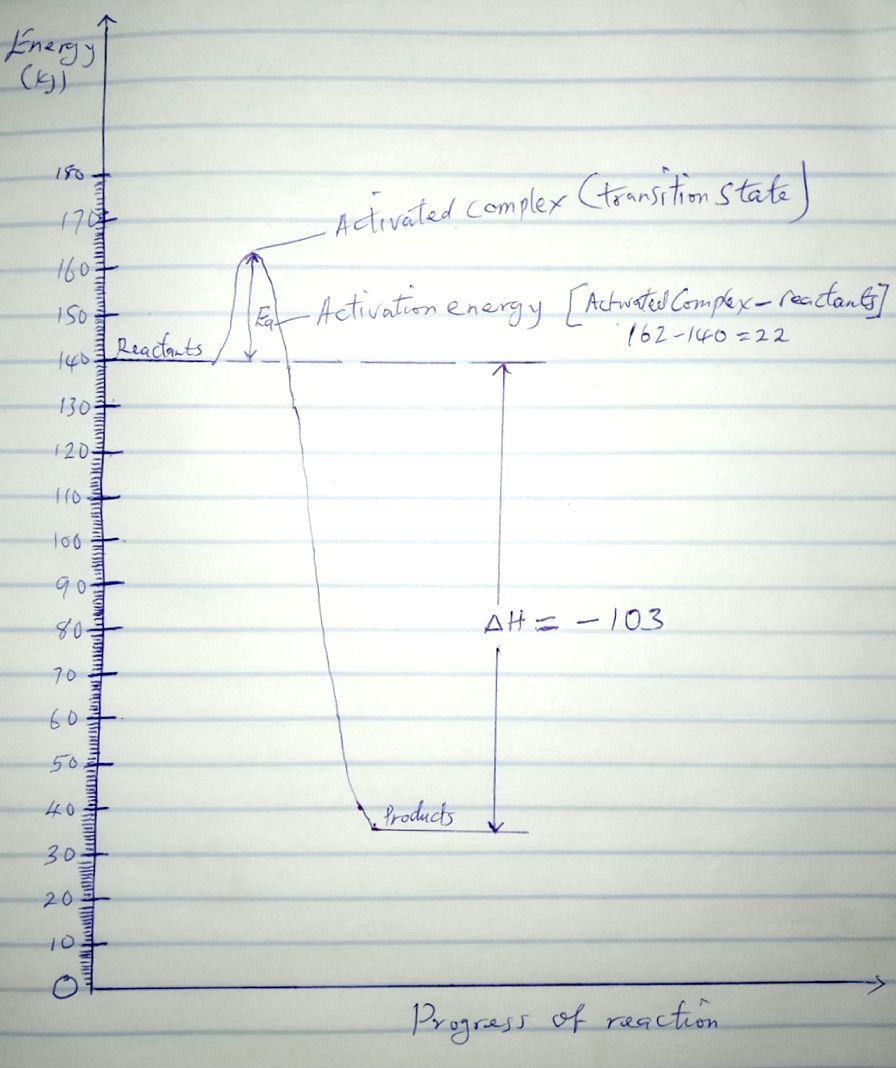 Energy
(KJ)
180
Activated complex (transition state)
170
160
150
Ea
Activation energy [Activated Complex - reactants]
162-140 = 22
Reactants
140
130
120
110
100
90
ΔH = - 103
80
70
60
50
40
Products
30
20
10
0
Progress of reaction